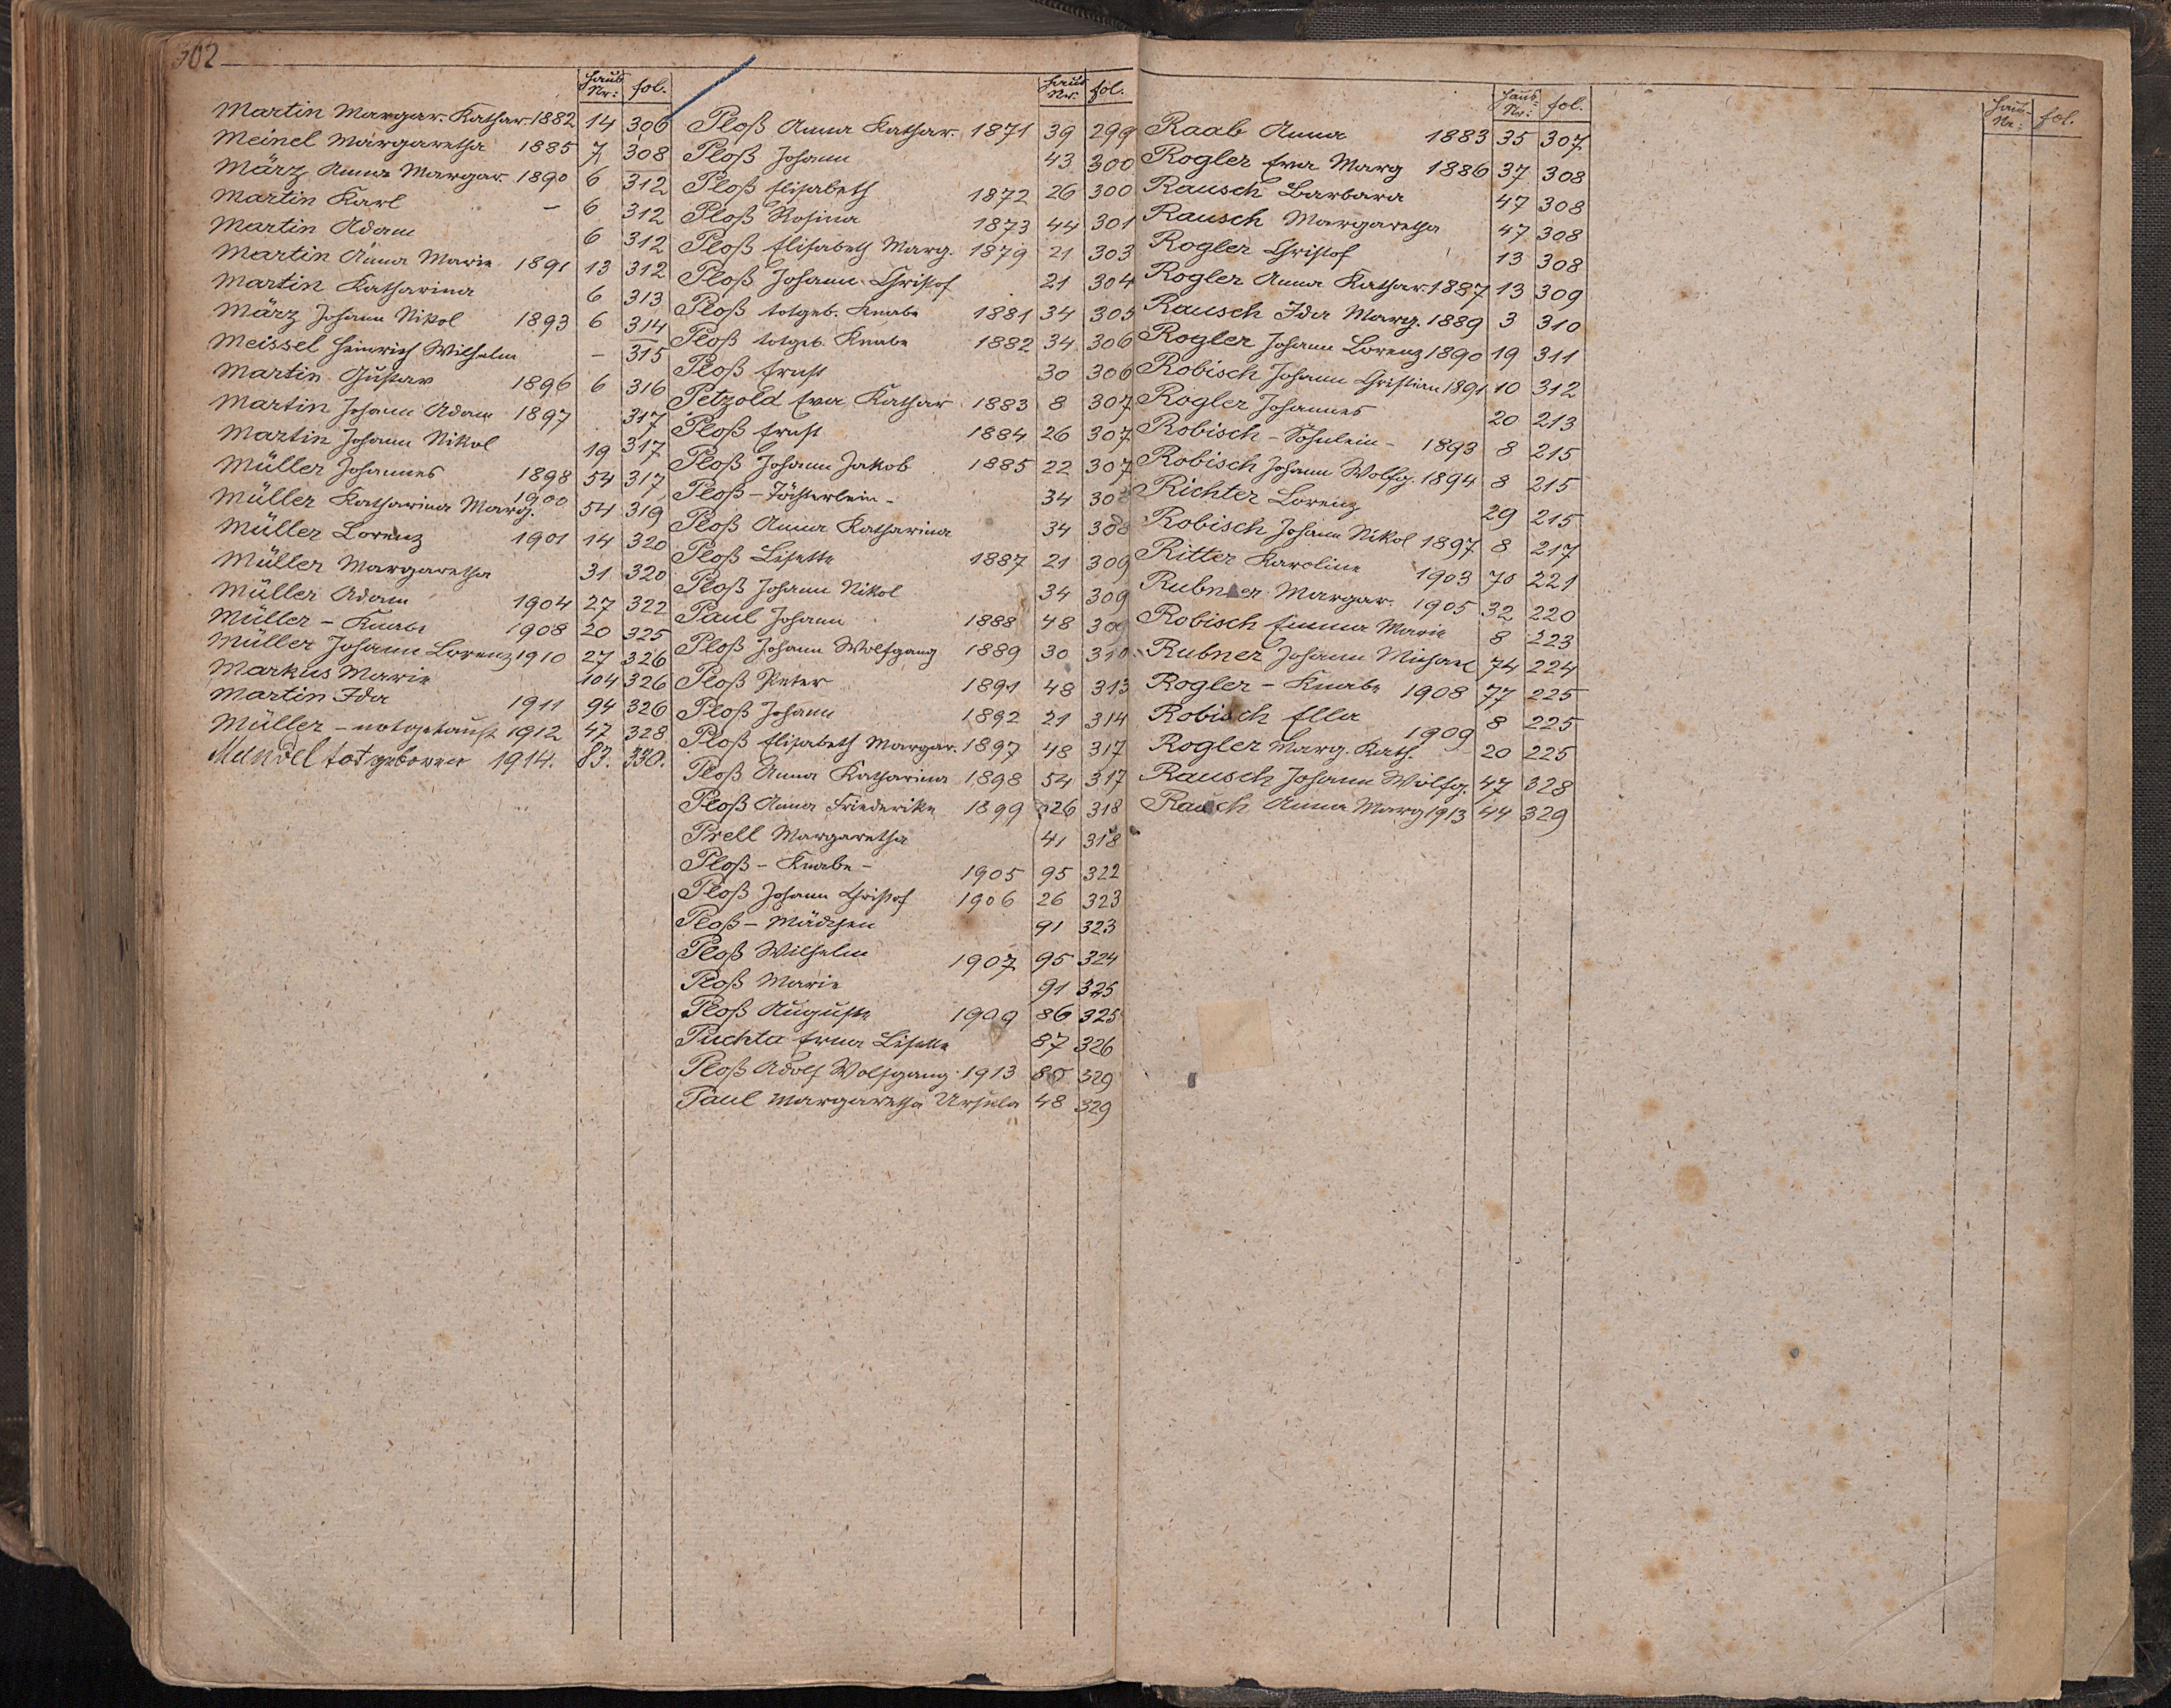 302
Haus Nr: fol.
Martin Margar. Kathar. 1882 14 306
Meinel Margaretha 1885 7 308
März Anna Margar. 1890 6 312
Martin Karl – 6 312
Martin Adam 6 312
Martin Anna Marie 1891 13 312
Martin Katharina 6 313
März Johann Nikol 1893 6 314
Meissel Heinrich Wilhelm – 315
Martin Gustav 1896 6 316
Martin Johann Adam 1897 317
Martin Johann Nikol 19 317
Müller Johannes 1898 54 317
Müller Katharina Marg. 1900 54 319
Müller Lorenz 1901 14 320
Müller Margaretha 31 320
Müller Adam 1904 27 322
Müller – Knabe 1908 20 325
Müller Johann Lorenz 1910 27 326
Markus Marie 104 326
Martin Ida 1911 94 326
Müller – notgetauft 1912 47 328
Mundel totgeboren 1914. 83. 330.
Haus Nr: fol.
Ploß Anna Kathar. 1871 39 299
Ploß Johann 43 300
Ploß Elisabeth 1872 26 300
Ploß Rosina 1873 44 301
Ploß Elisabeth Marg. 1879 21 303
Ploß Johann Christof 21 304
Ploß totgeb. Knabe 1881 34 305
Ploß totgeb. Knabe 1882 34 306
Ploß Ernst 30 306
Petzold Eva Kathar 1883 8 307
Ploß Ernst 1884 26 307
Ploß Johann Jakob 1885 22 307
Ploß – Töchterlein – 34 308
Ploß Anna Katharina 34 308
Ploß Lisette 1887 21 309
Ploß Johann Nikol 34 309
Paul Johann 1888 48 309
Ploß Johann Wolfgang 1889 30 310
Ploß Peter 1891 48 313
Ploß Johann 1892 21 314
Ploß Elisabeth Margar. 1897 48 317
Ploß Anna Katharina 1898 54 317
Ploß Anna Friederike 1899 26 318
Prell Margaretha 41 318
Ploß – Knabe – 1905 95 322
Ploß Johann Christof 1906 26 323
Ploß – Mädchen 91 323
Ploß Wilhelm 1907 95 324
Ploß Marie 91 325
Ploß Auguste 1909 86 325
Puchta Erna Lisette 87 326
Ploß Adolf Wolfgang 1913 329
Paul Margaretha Ursula 48 329
Haus Nr: fol.
Raab Anna 1883 35 307
Rogler Eva Marg 1886 37 308
Rausch Barbara 47 308
Rausch Margaretha 47 308
Rogler Christof 13 308
Rogler Anna Kathar. 1887 13 309
Rausch Ida Marg. 1889 3 310
Rogler Johann Lorenz 1890 19 311
Robisch Johann Christian 1891 10 312
Rogler Johannes 20 213
Robisch – Söhnlein – 1893 8 215
Robisch Johann Wolfg. 1894 8 215
Richter Lorenz 29 215
Robisch Johann Nikol 1897 8 217
Ritter Karoline 1903 70 221
Rubner Margar. 1905 32 220
Robisch Emma Marie 8 223
Rubner Johann Michael 74 224
Rogler – Knabe 1908 77 225
Robisch Ella 1909 8 225
Rogler Marg. Kath. 20 225
Rausch Johann Wolfg. 47 328
Rausch Anna Marg 1913 44 329
Haus Nr: fol.